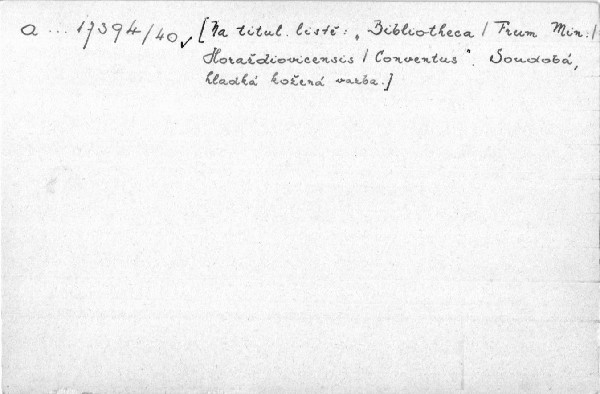 a ... 17394/40 ✓ [Na titul. listě: „Bibliotheca / Frum Min. /
Horažďiovicensis / Conventus". Soudobá,
hladká kožená vazba.]